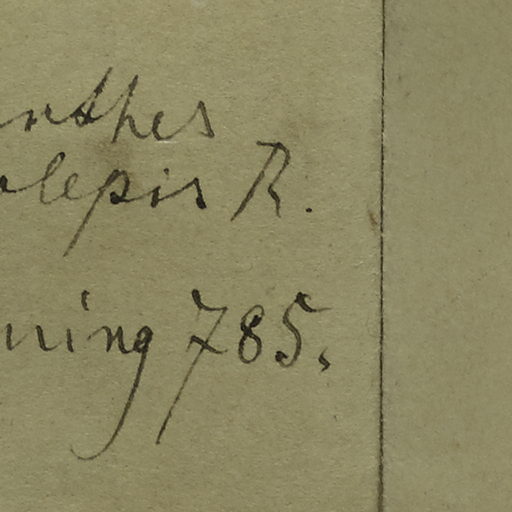 nthes
olepis R.
ning 785.